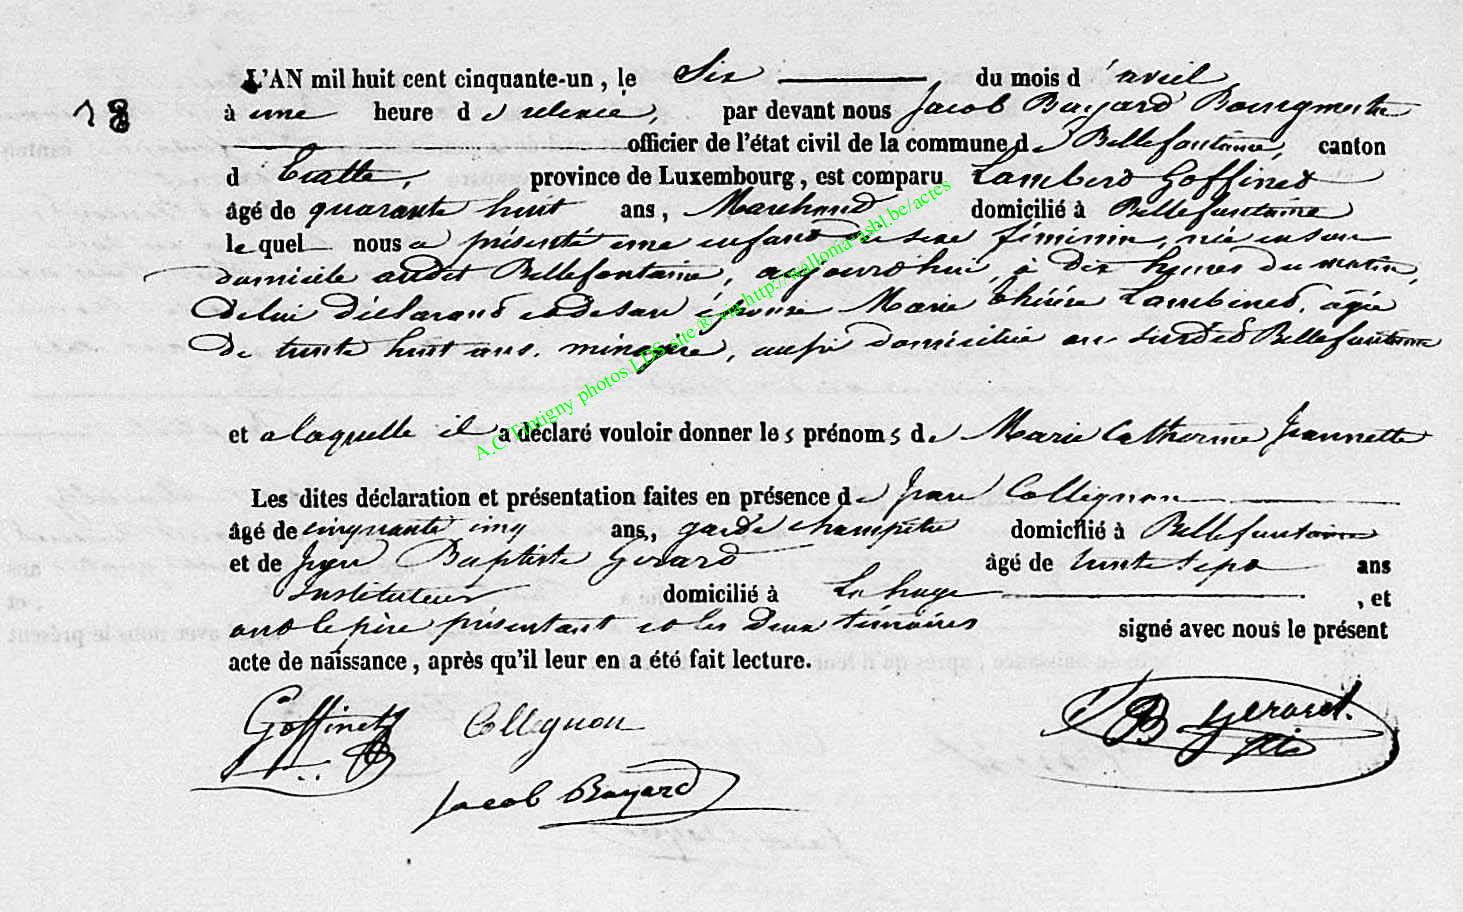 18
L'AN mil huit cent cinquante-un, le Six du mois d'avril
à une heure de relevée, par devant nous Jacob Bayard Bourgmestre
officier de l'état civil de la commune de Bellefontaine, canton
d'Etalle, province de Luxembourg, est comparu Lambert Goffinet
âgé de quarante huit ans, Marchand domicilié à Bellefontaine
le quel nous a présenté une enfant du sexe féminin, née en son
domicile audit Bellefontaine, aujourd'hui, à dix heures du matin,
de lui déclarant et de son épouse Marie Thérèse Lambinet, âgée
de trente huit ans, ménagère, aussi domiciliée au surdit Bellefontaine
et a laquelle il a déclaré vouloir donner les prénoms de Marie Catherine Jeannette
Les dites déclaration et présentation faites en présence de Jean Collignon
âgé de cinquante cinq ans, garde champêtre domicilié à Bellefontaine
et de Jean Baptiste Gérard âgé de trente sept ans
Instituteur domicilié à La hage, et
ont le père présentant et les deux témoins signé avec nous le présent
acte de naissance, après qu'il leur en a été fait lecture.
Goffinet Collignon JB Gerard
Jacob Bayard
A.C Tintigny photos LDS site ® via http://wallonia-asbl.be/actes